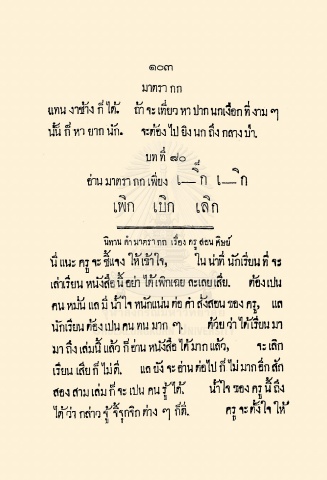 ๑๐๓
มาตรา กก
แทน งาช้าง ก็ ได้. ถ้า จะ เที่ยว หา ปาก นกเงือก ที่ งาม ๆ
นั้น ก็ หา ยาก นัก. จะต้อง ไป ยิง นก ถึง กลาง ป่า.
บท ที่ ๙๐
อ่าน มาตรา กก เพียง เ–ิ็ก เ–ิก
เพิก เบิก เลิก
นิทาน คำ มาตรา กก เรื่อง ครู สอน ศิษย์
นี่ แนะ ครู จะ ชี้แจง ให้ เข้าใจ, ใน น่าที่ นักเรียน ที่ จะ
เล่าเรียน หนังสือ นี้ อย่า ได้ เพิกเฉย ละเลย เสีย. ต้อง เปน
คน หมั่น แล มี น้ำใจ หนักแน่น ต่อ คำ สั่งสอน ของ ครู, แล
นักเรียน ต้อง เปน คน ทน มาก ๆ. ด้วย ว่า ได้ เรียน มา
มา ถึง เล่ม นี้ แล้ว ก็ อ่าน หนังสือ ได้ มาก แล้ว, จะ เลิก
เรียน เสีย ก็ ไม่ ดี. แล ยัง จะ อ่าน ต่อ ไป ก็ ไม่ มาก อีก สัก
สอง สาม เล่ม ก็ จะ เปน คน รู้ ได้. น้ำใจ ของ ครู นี้ ถึง
ได้ ว่า กล่าว จู้ จี้ จุกจิก ต่าง ๆ ก็ดี. ครู จะ ตั้งใจ ให้